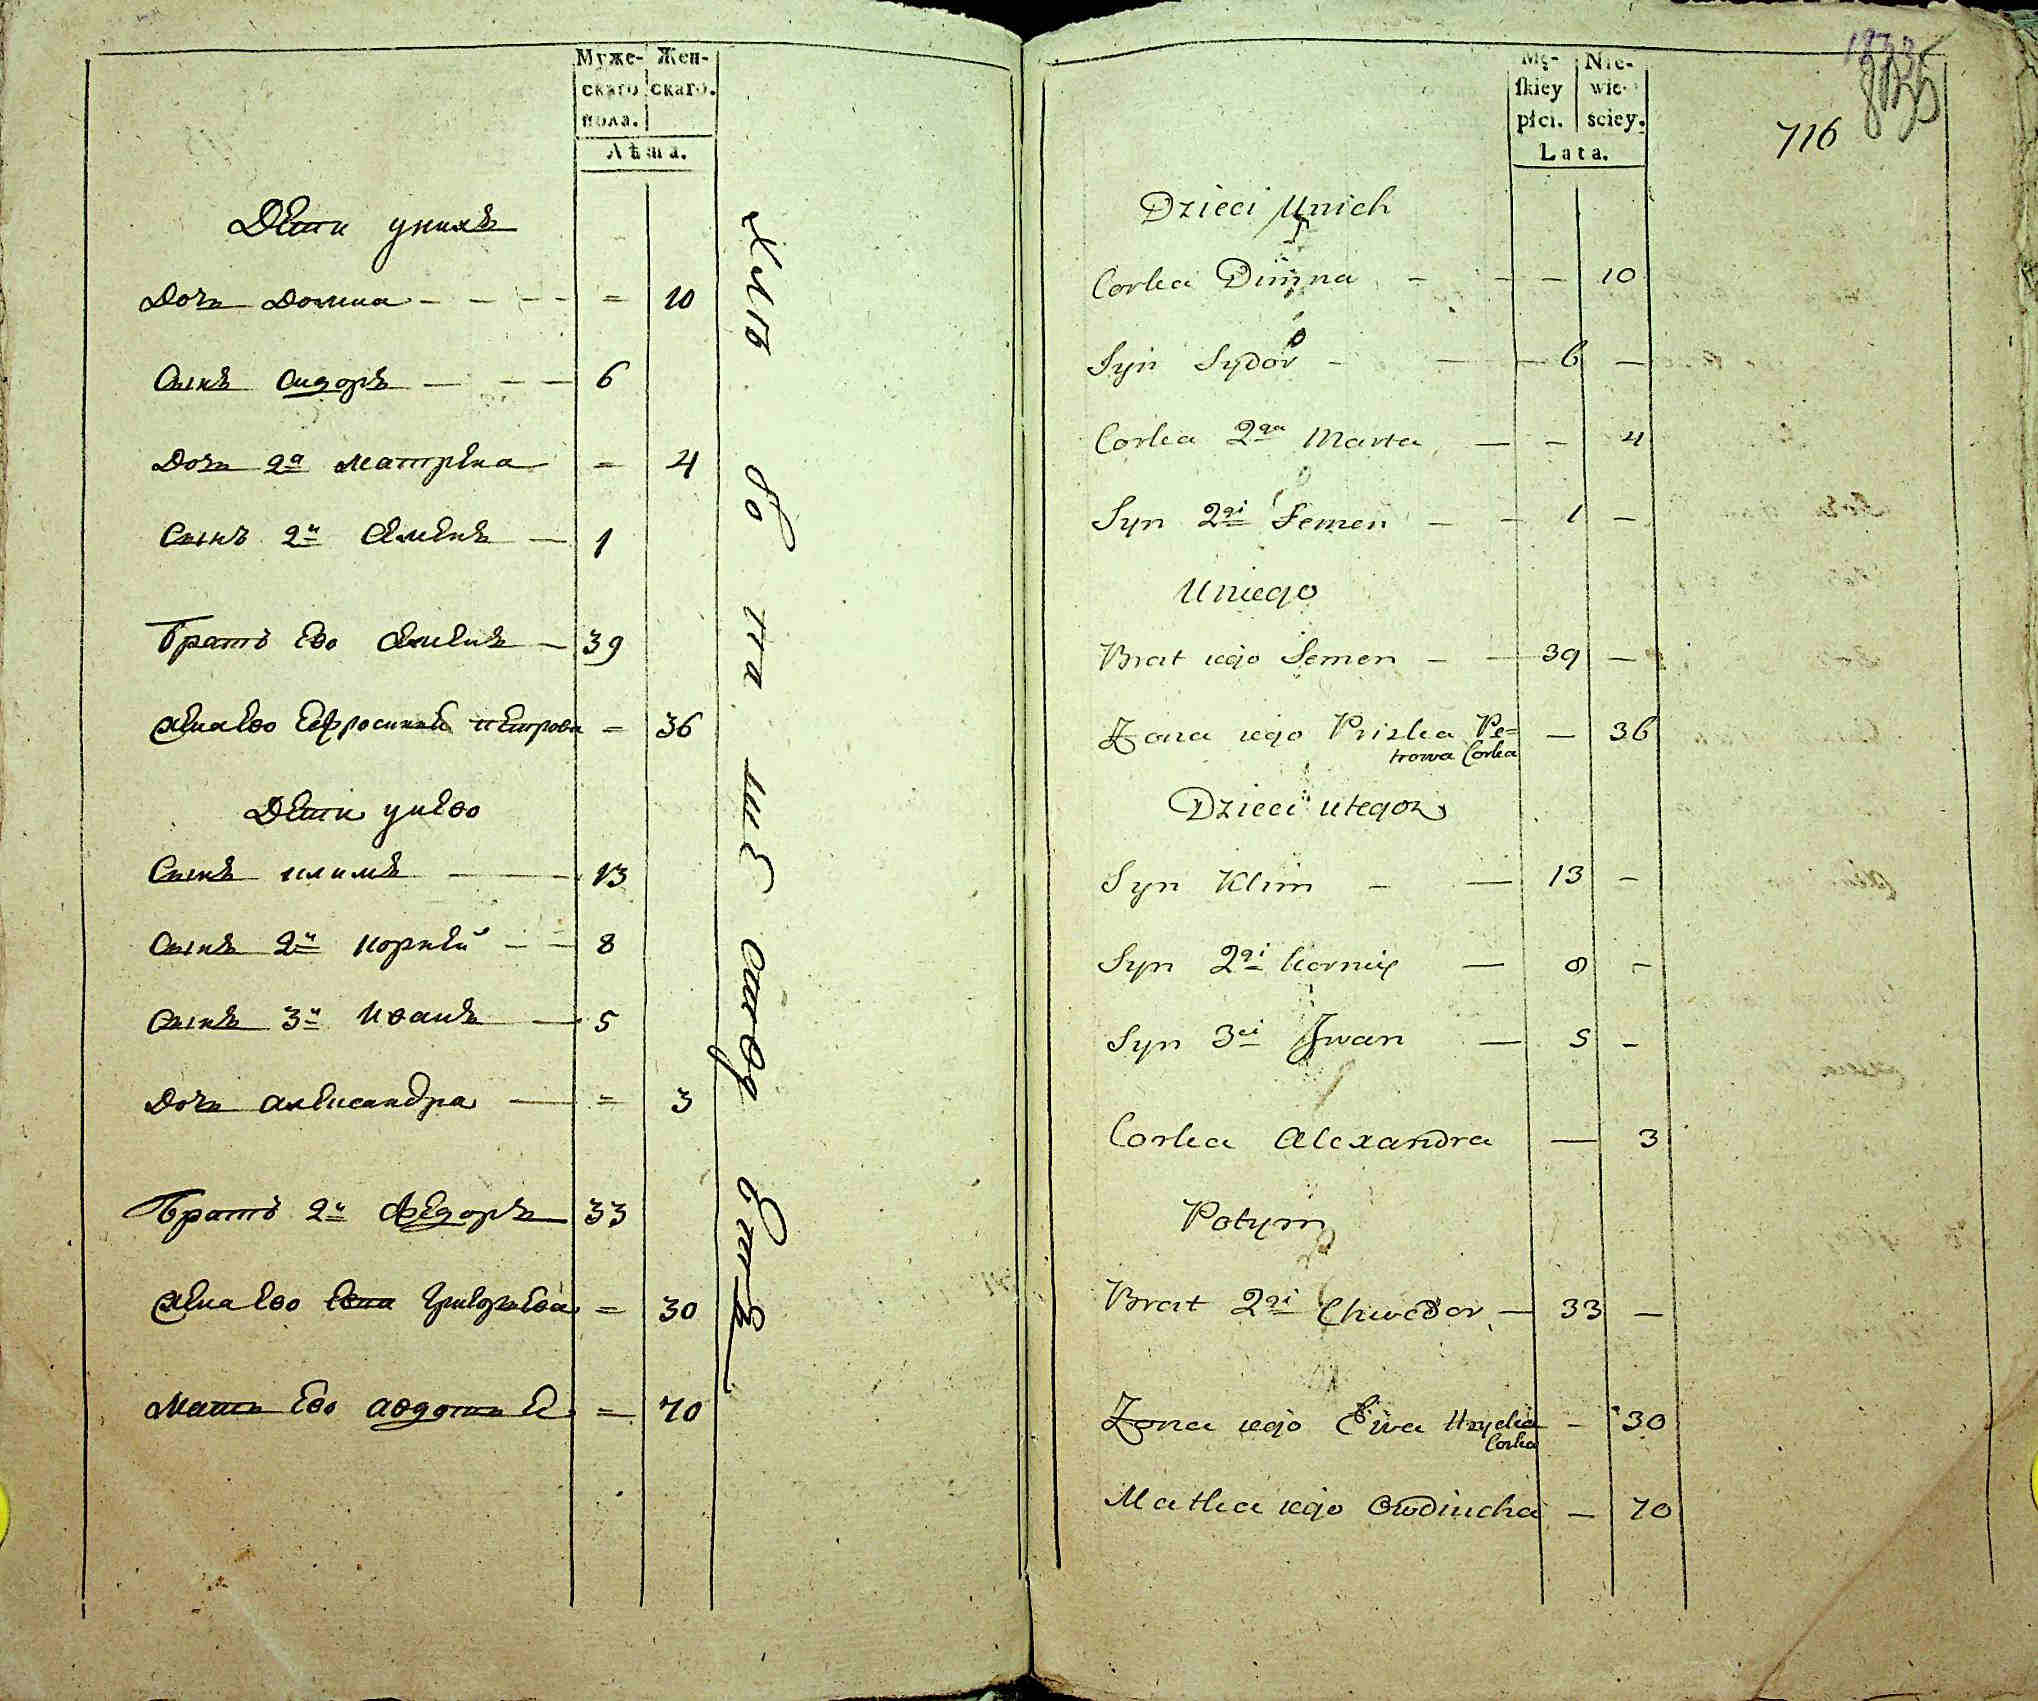 Муже- Жен-
скаго скаго.
пола.
Лѣта.
Дети унихъ
Дочь Домна - - - - = 10
Сынъ Сидоръ - - - 6
Дочь 2а Матрена = 4
Сынъ 2й Семенъ - 1
Братъ Ево Семенъ - 39
Жена Ево Ефросиния Петрова = 36
Дети унево
Сынъ Климъ - - 13
Сынъ 2й Корней - - 8
Сынъ 3й Иванъ - 5
Дочь Александра - = 3
Братъ 2й Федоръ 33
Жена Ево Ева Григорьева = 30
Мать Ево Авдотья = 70
Mę- Nie-
skiey wie-
płci. sciey.
Lata.
716
Dzieci Unich
Corka Dimna - - - 10
Syn Sydor - - - 6 -
Corka 2ga Marta - - 4
Syn 2gi Semen - - 1 -
Uniego
Brat iego Semen - - 39 -
Zona iego Priska Pe=
trowa Corka - 36
Dzieci utegoz
Syn Klim - - 13 -
Syn 2gi Korniy - 8 -
Syn 3ci Jwan - 5 -
Corka Alexandra - 3
Potym
Brat 2gi Chwedor - 33 -
Zona iego Ewa Hrycka
Corka - 30
Matka iego Owdiucha - 70